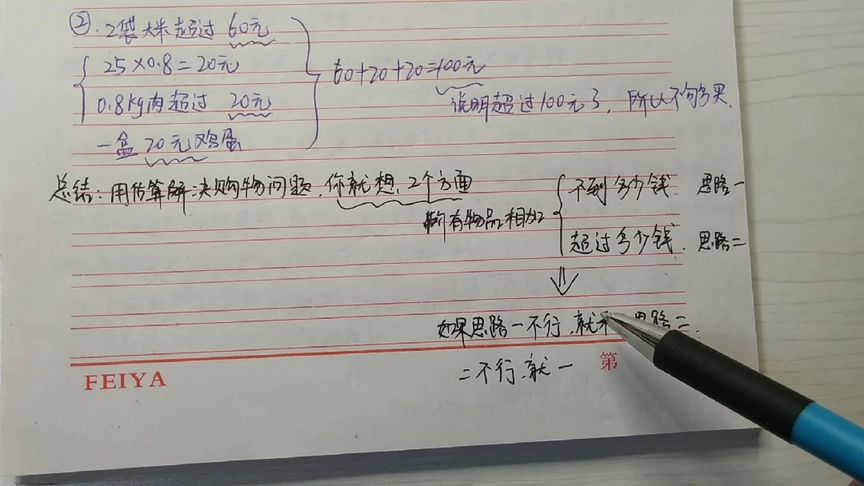 ②. 2袋大米超过 60元
25×0.8=20元
0.8kg肉超过 20元
一盒 20元鸡蛋
60+20+20=100元
说明超过100元了, 所以不够买.
总结: 用估算解决购物问题, 你就想, 2个方面
所有物品相加
不到多少钱. 思路一
超过多少钱. 思路二
如果思路一不行, 就 思路二.
二不行, 就一
FEIYA
第